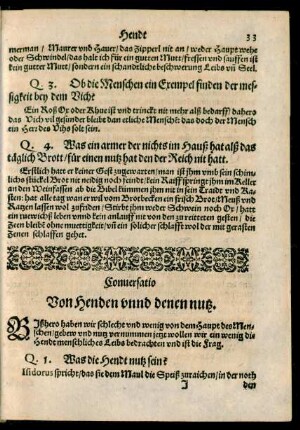 Hendt 33
merman / Maurer vnd Hauer / das Zipperl nit an / weder Haupt wehe
oder Schwindel / das halt ich für ein guten Mutt / fressen vnd sauffen ist
kein guter Mutt / sondern ein schandtliche beschwerung Leibs vn Seel.
Q. 3. Ob die Menschen ein Exempel finden der mes-
sigkeit bey dem Vich?
Ein Roß Ox oder Khue ißt vnd trinckt nit mehr alß bedarff / dahero
das Vich vil gesünder bleibt dan etliche Menschen das doch der Mensch
ein Herr des Vichs solt sein.
Q. 4. Was ein armer der nichts im Hauß hat alß das
täglich Brott / für einen nutz hat den der Reich nit hatt.
Erstlich hatt er keiner Gest zugewarten / man ist ihm vmb sein schim-
lichs stückel Brot nit neidig noch feindt / kein Raiff springt ihm im Keller
an den Weinfassen ab die Bibel kummen ihm nit in sein Traidt vnd Ka-
sten: hat alle tag wan er wil vom Brotbecken ein frisch Brot / Meuß vnd
Ratzen lassen wol zufriden / Stirbt ihm weder Schwein noch Ox / hatt
ein ruewichs leben vnnd kein anlauff nit von den zu reitteten gesten / die
Zeen bleibt ohne muettigkeit / vn ein solicher schlafft wol der mit gerasten
Zeenen schlaffen gehet.
Conuersatio
Von Henden vnnd denen nutz.
Bißhero haben wir schlecht vnd wenig von dem Haupt des Men-
schen / gedew vnd nutz vernummen jetzt wollen wir ein wenig die
Hendt menschliches Leibs bedrachten vnd ist die Frag.
Q. 1. Was die Hendt nutz sein?
Isidorus spricht / das sie dem Maul die Speiß zuraichen / in der noth
I den